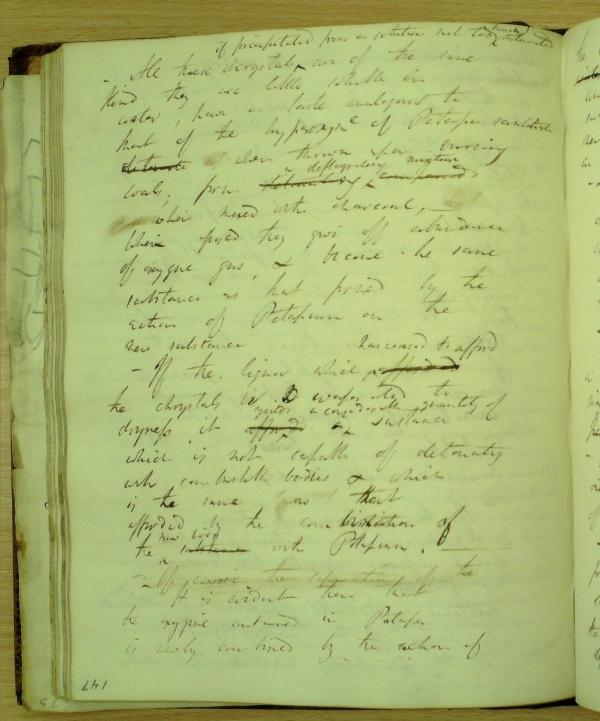 if precipitated from a solution not too much saturated
- All these chrystals are of the same
kind they are little soluble in
water, have a taste analogous to
that of the hyperoxymc of Potassa scintillate
detonate when thrown upon burning
coals, form a deflagrating mixture
when mixed with charcoal,
When fused they give off abundance
of oxygene gas, & become the same
substance as that formed by the
action of Potassium on the
new substance
- If the liquor which has ceased to afford afforded
the chrystals is evaporated to
dryness it yields a considerable quantity of
afforded a substance
which is not capable of detonating
with combustible bodies & which
is the same as that
afforded by the combination of
the new body substance with Potassium.
the separation of the
It is evident then that
the oxygene contained in Potassa
is newly combined by the action of
147